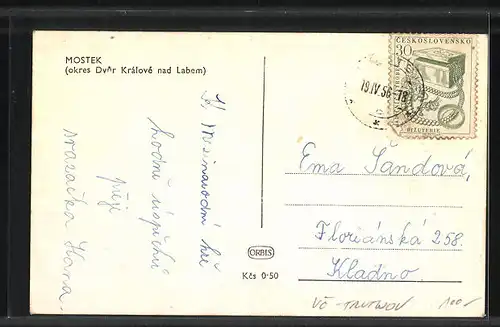 MOSTEK
(okres Dvůr Králové nad Labem)
K
hře
hodně úspěchů
přeje
svazačka Hana.
ČESKOSLOVENSKO
30
BIŽUTERIE
19.IV.56-18
Ema Šandová,
Floriánská 258.
Kladno.
ORBIS
Kčs 0·50
VČ - TRUTNOV
100,-